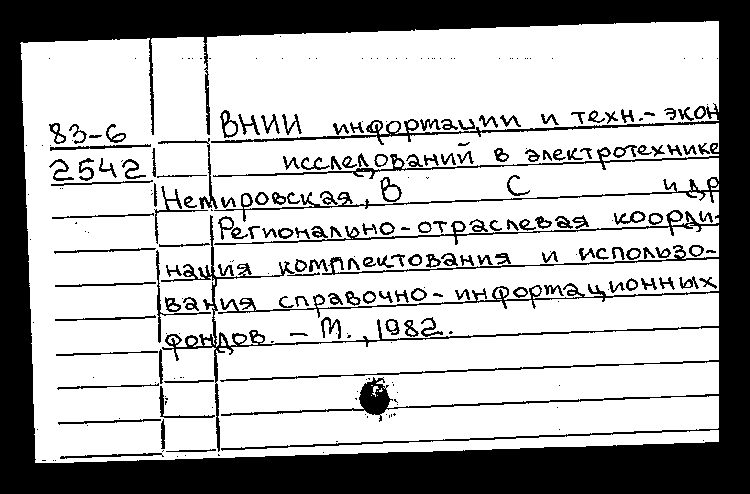 83-6 ВНИИ информации и техн.- экон
2542 исследований в электротехнике
Немировская, В С и др
Регионально-отраслевая коорди-
нация комплектования и использо-
вания справочно-информационных
фондов. - М., 1982.